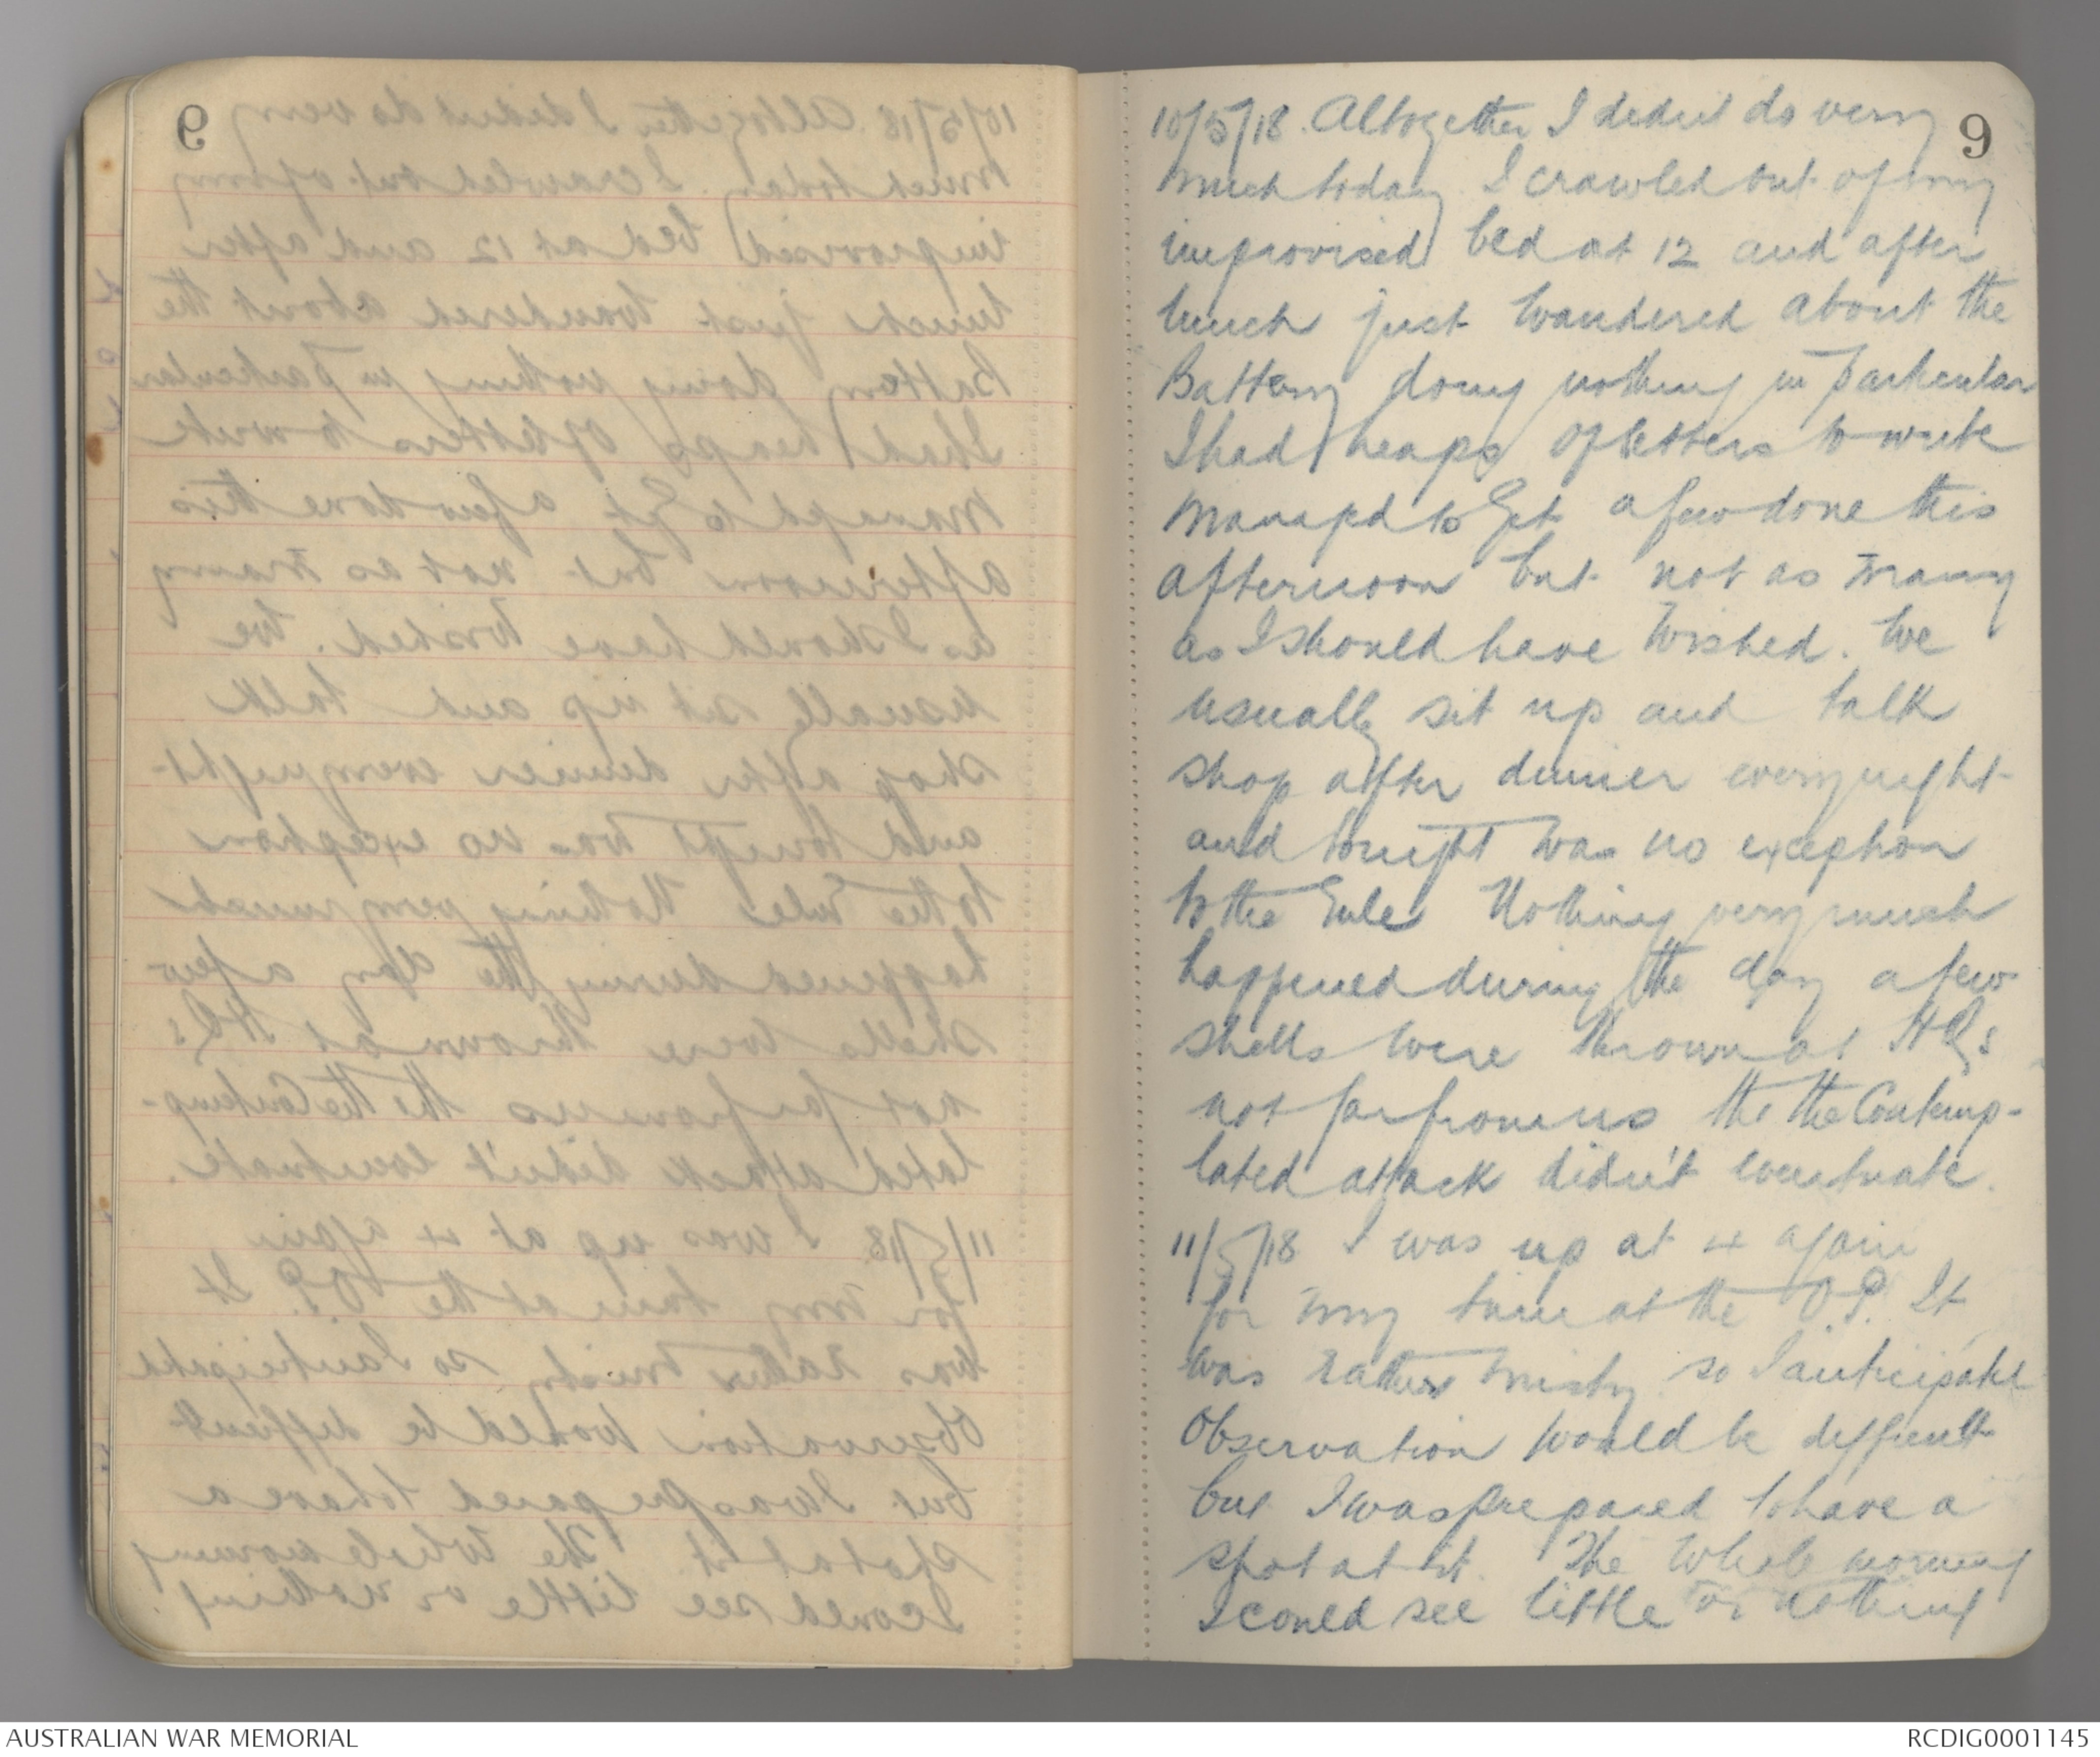 9
10/5/18. Altogether I didn't do very
much today I crawled out of my
improvised bed at 12 and after
lunch just wandered about the
Battery doing nothing in particular
I had heaps of letters to write
managed to get a few done this
afternoon but not as many
as I should have wished. We
usually sit up and talk
shop after dinner every night
and tonight was no exception
to the rule. Nothing very much
happened during the day a few
shells were thrown at HQs
not far from us tho the Contemp-
lated attack didn't eventuate.
11/5/18 I was up at 4 again
for my turn at the O.P. It
was rather misty so I anticipated
observation would be difficult
but I was prepared to have a
shot at it. The whole morning
I could see little or nothing
AUSTRALIAN WAR MEMORIAL
RCDIG0001145